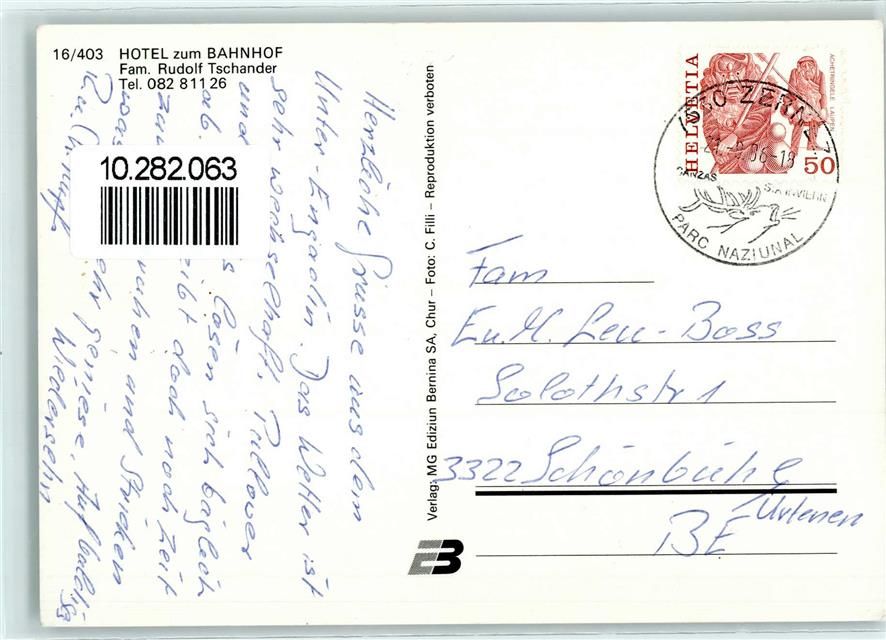 16/403 HOTEL zum BAHNHOF
Fam. Rudolf Tschander
Tel. 082 81126
Herzliche Grüsse aus dem
Unter-Engadin. Das Wetter ist
sehr wechselhaft, Pullover
und
ab. lösen sich täglich
bleibt doch noch Zeit
zum ruhen und Stricken
was sehr geniese. Auf baldig
Wiedersehn
10.282.063
Verlag: MG Ediziun Bernina SA, Chur – Foto: C. Filli – Reproduktion verboten
HELVETIA
ACHETRINGELE LAUPEN
50
ZERNEZ
PARC NAZIUNAL
Fam
E u. M. Leu-Boss
Solothstr 1
3322 Schönbühl
Urtenen
BE